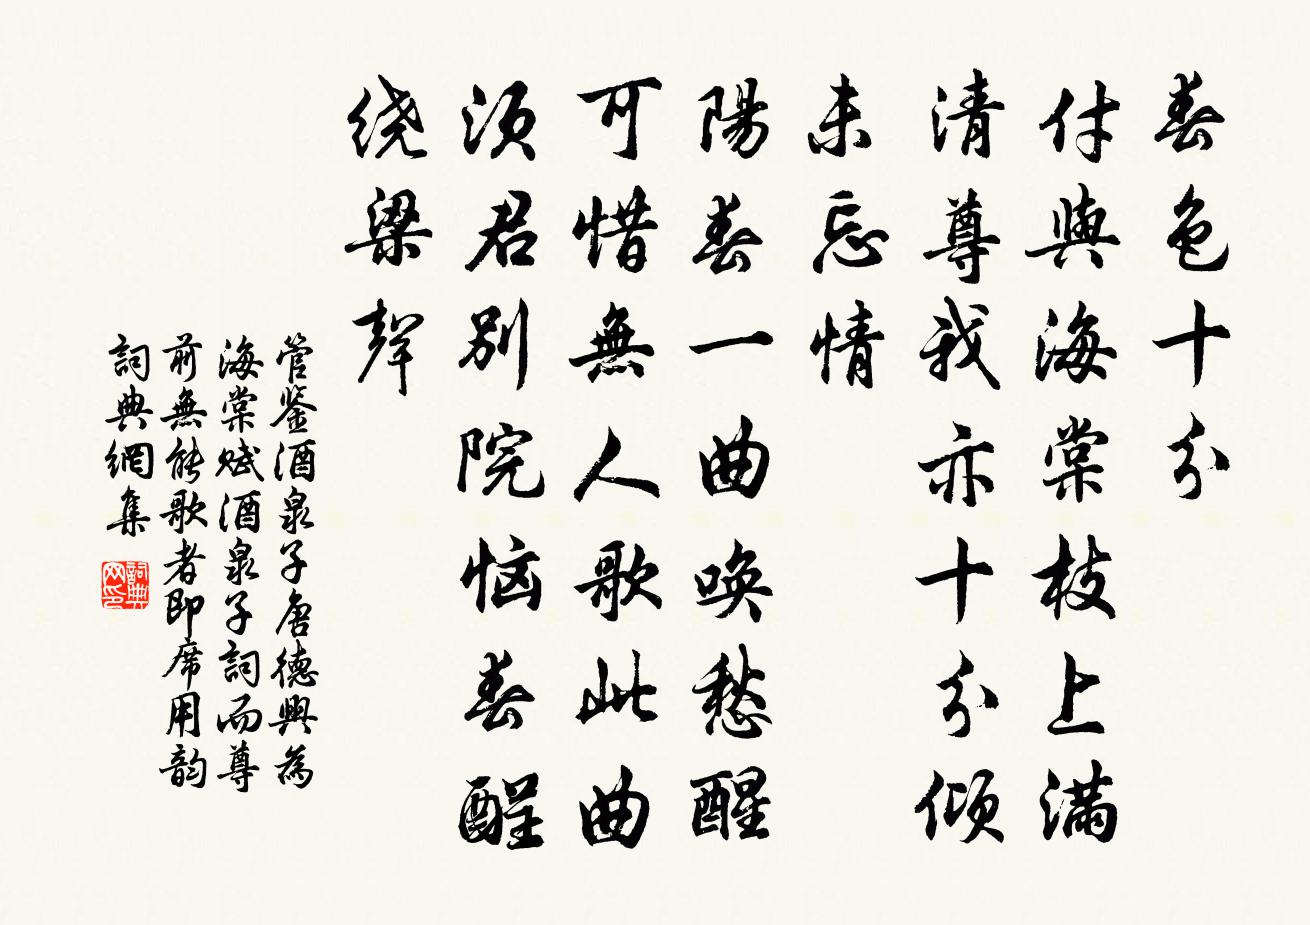 春色十分
付與海棠枝上滿
清尊我亦十分傾
未忘情
陽春一曲喚愁醒
可惜無人歌此曲
須君別院惱春酲
绕梁聲
管鉴酒泉子唐德興為
海棠赋酒泉子詞而尊
前無能歌者即席用韵
詞典網集
詞典
网印